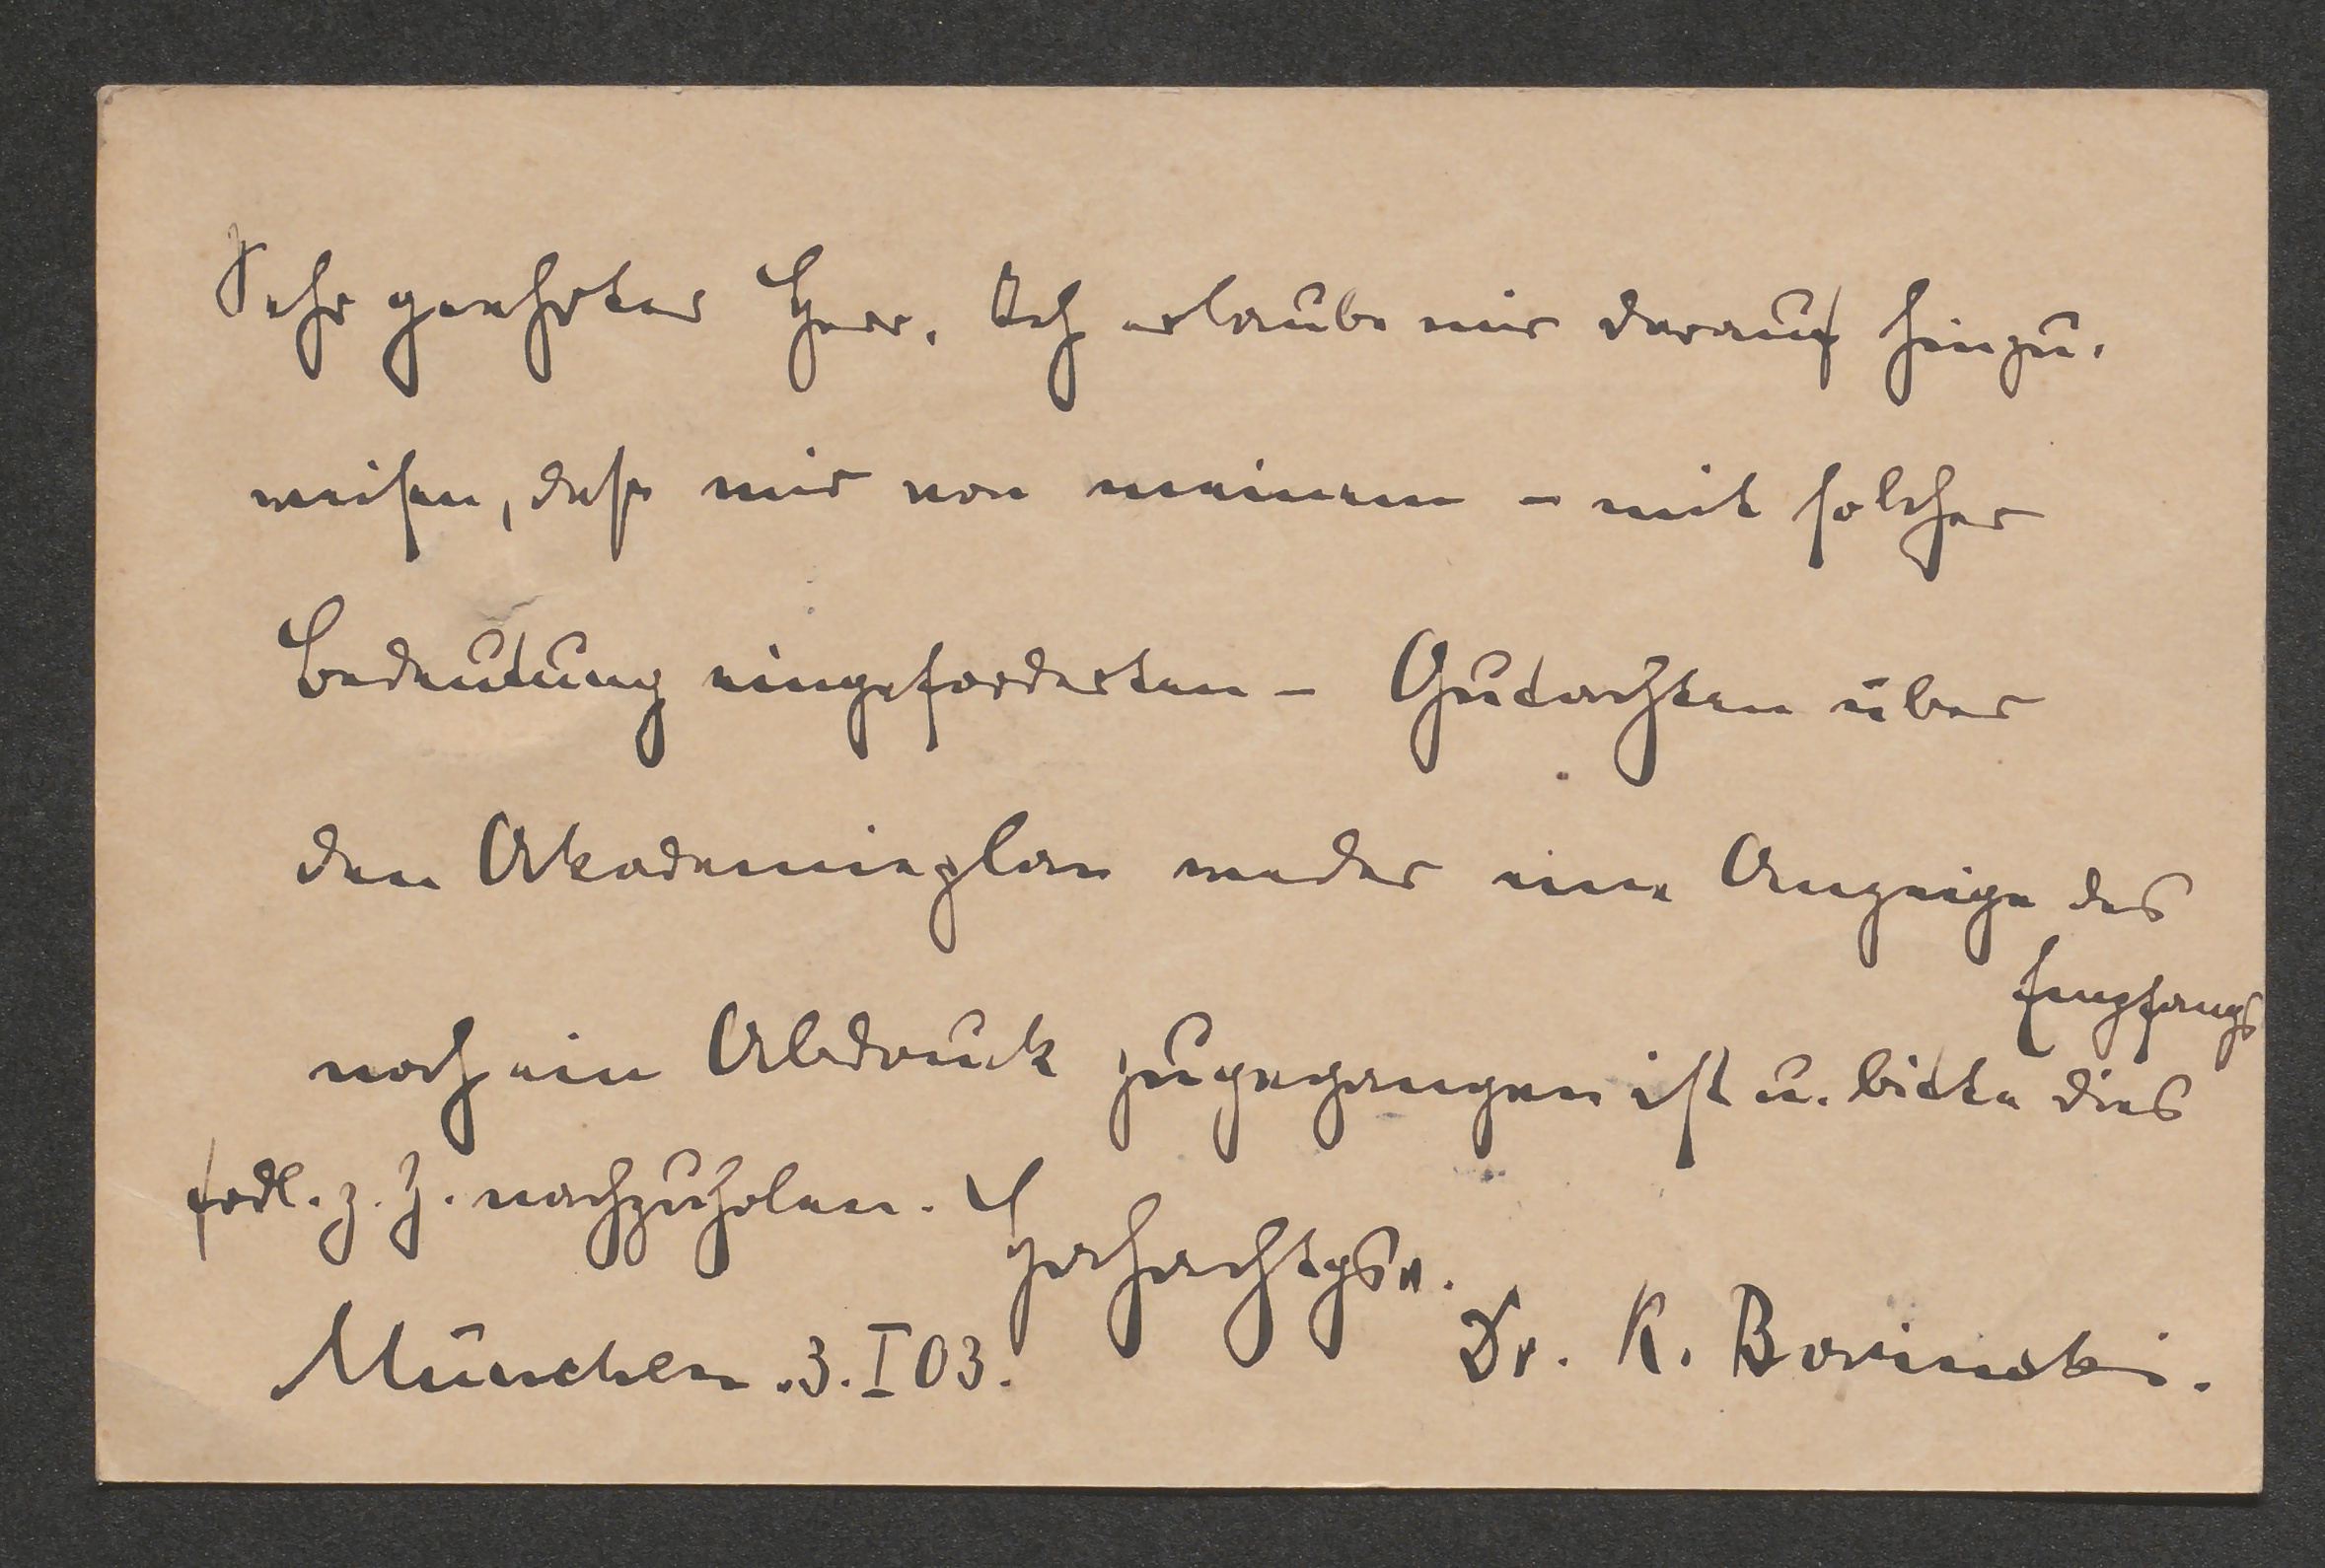 Sehr geehrter Herr. Ich erlaube mir darauf hinzu-
weisen, dass mir von meinem – mit solcher
Bedeutung eingeforderten – Gutachten über
den Akademieplan weder eine Anzeige des
Empfangs
noch ein Abdruck zugegangen ist u. bitte dies
frdl. z. Z. nachzuholen.
Hochachtgsv.
München. 3. I 03.
Dr. K. Borinski.